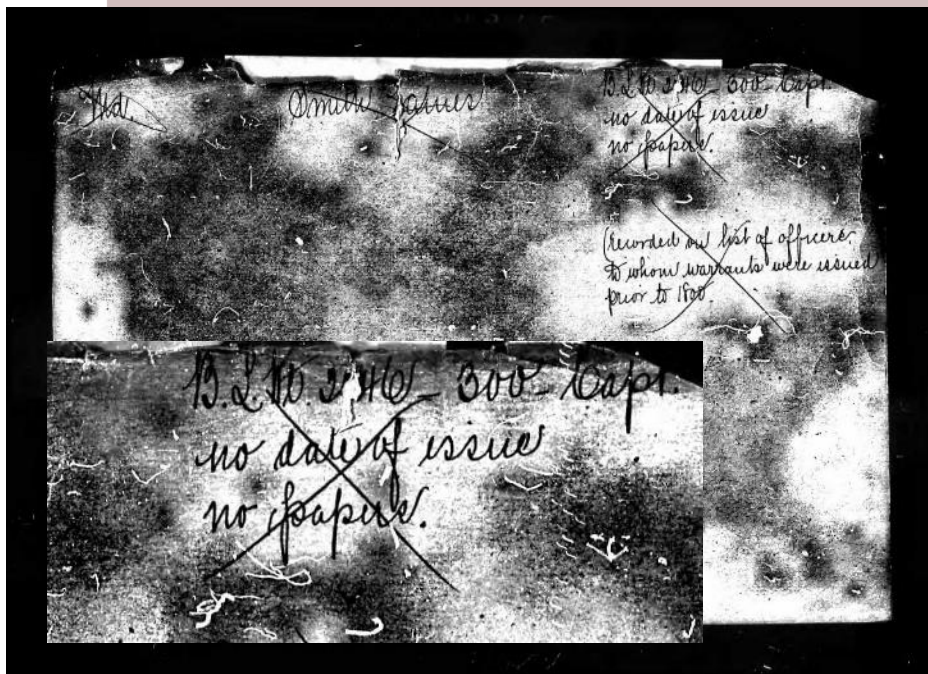 Md.
Smith James
B.L.W. 2146-300-Capt.
no date of issue
no papers.
(Recorded on list of officers,
to whom warrants were issued
prior to 1800.
B.L.W. 2146-300-Capt.
no date of issue
no papers.